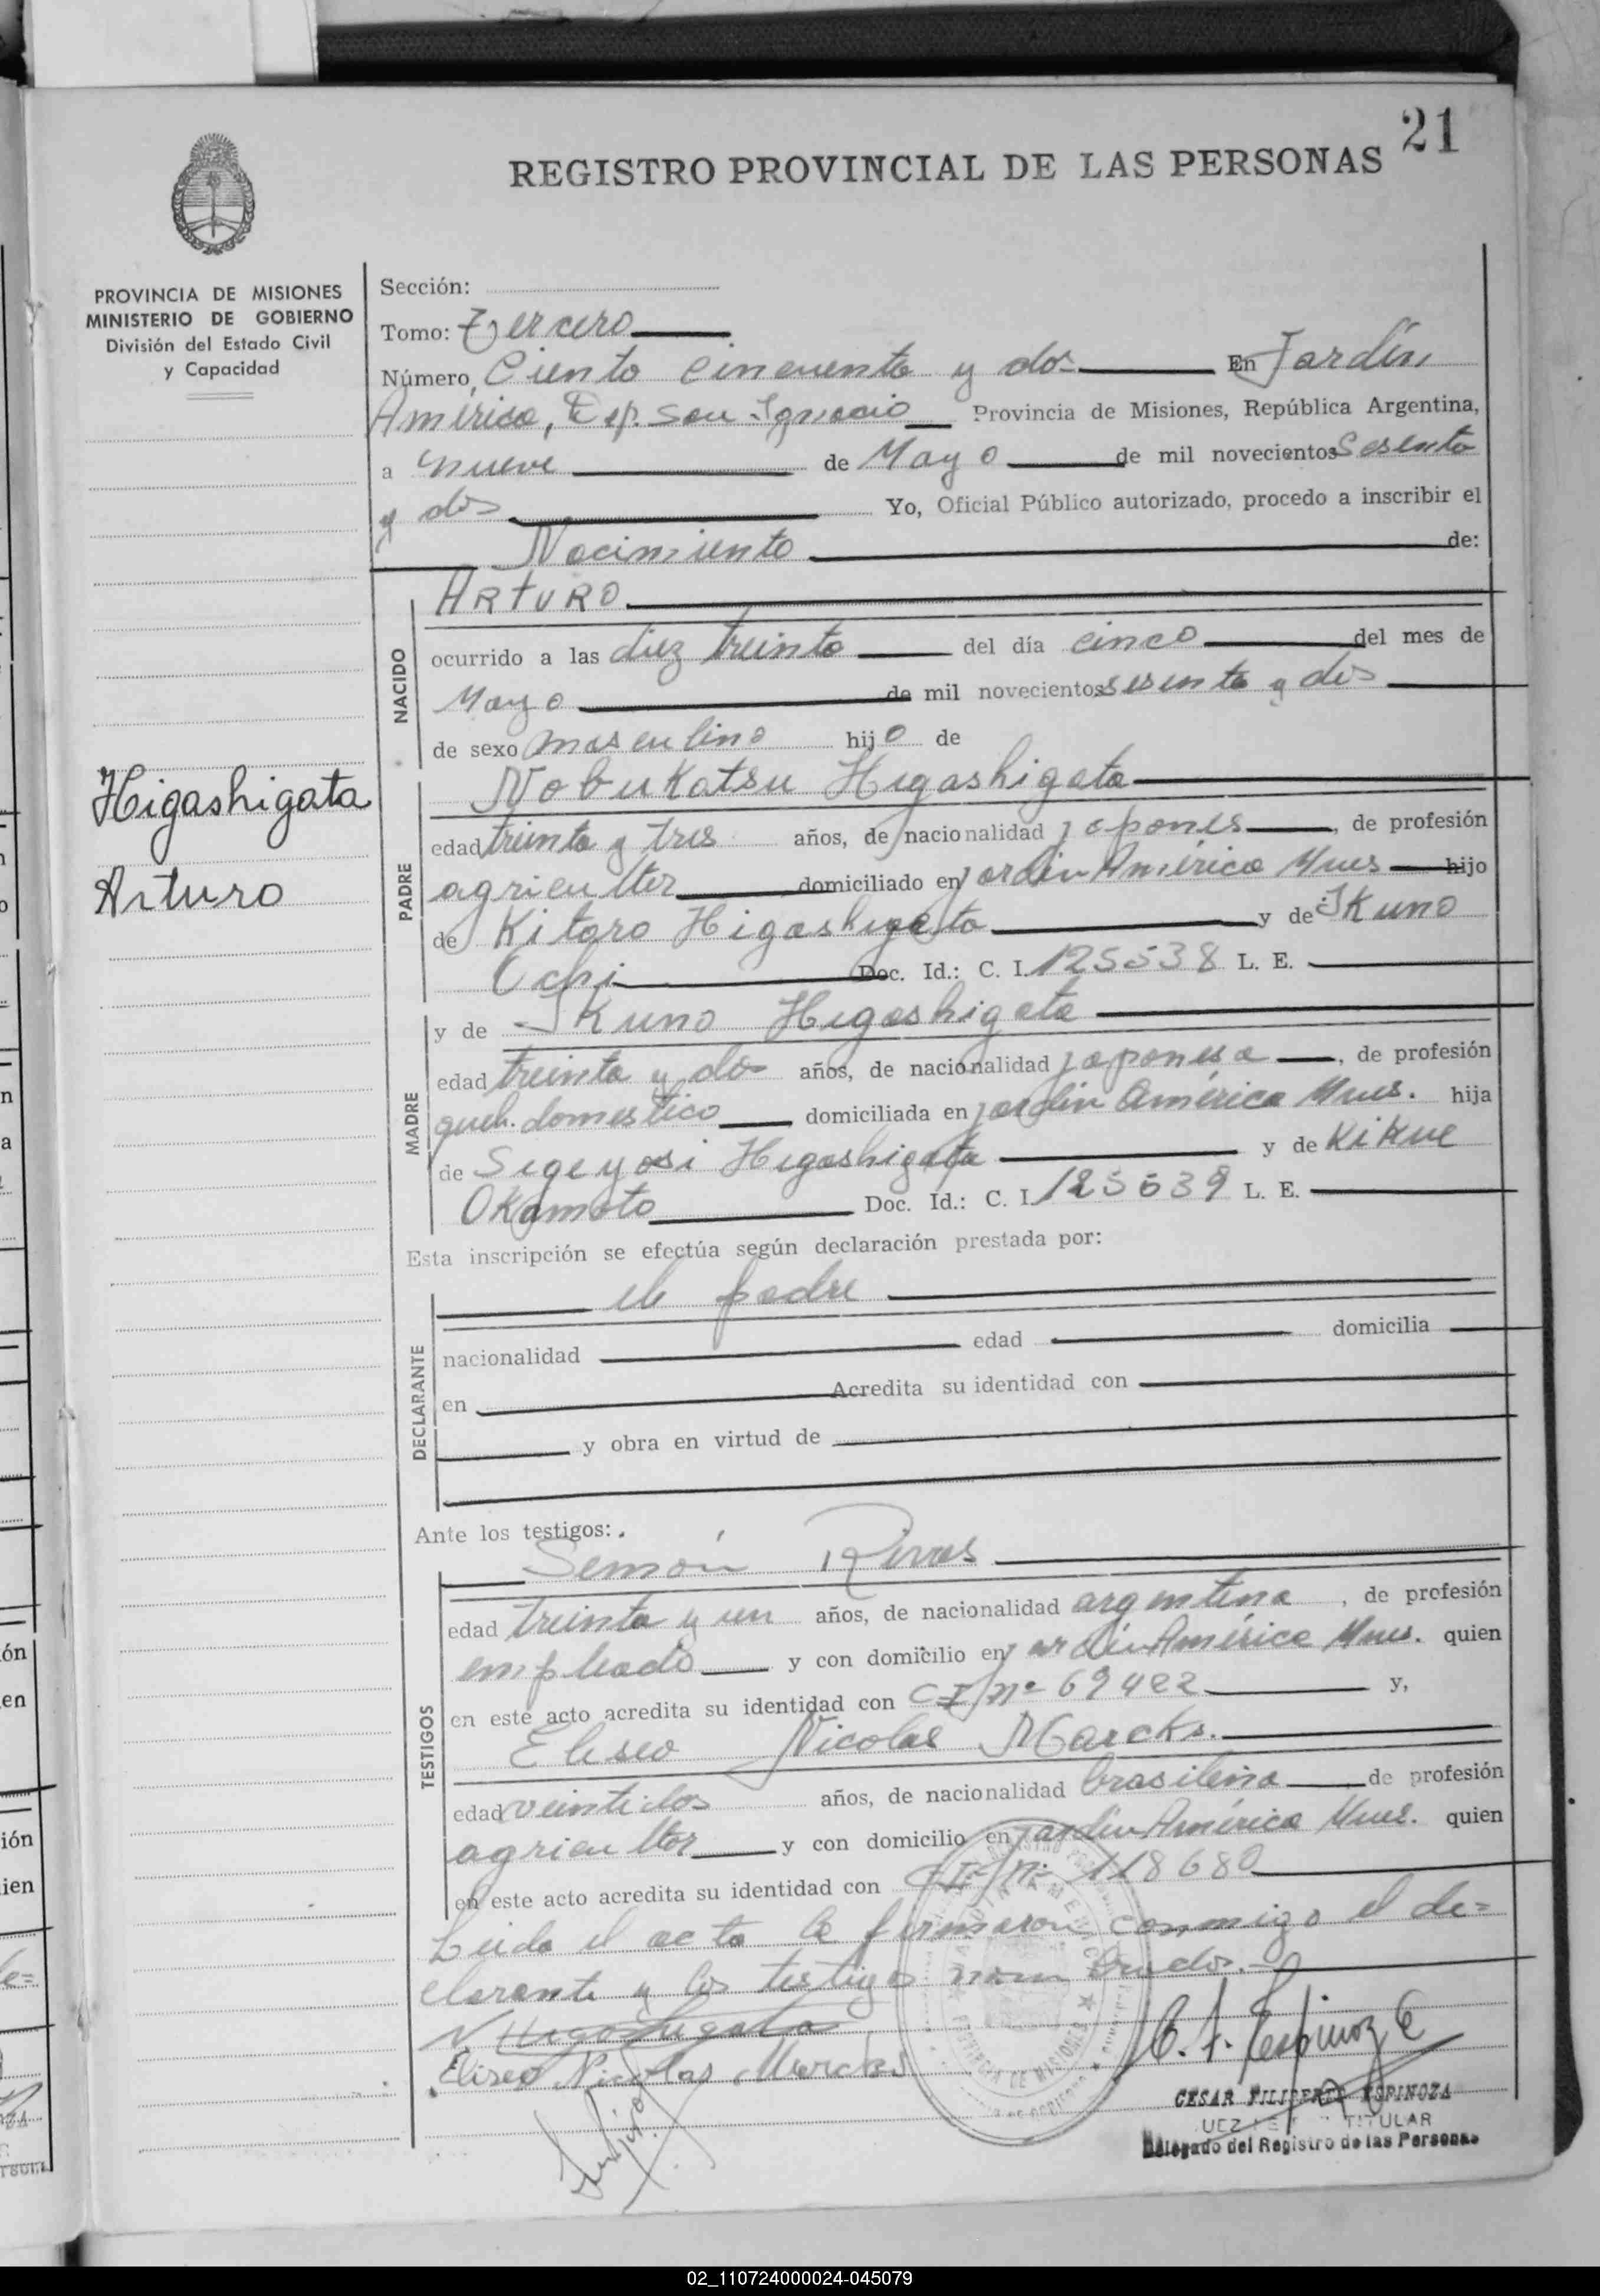 21
REGISTRO PROVINCIAL DE LAS PERSONAS
PROVINCIA DE MISIONES
MINISTERIO DE GOBIERNO
División del Estado Civil
y Capacidad
Higashigata
Arturo
Sección:
Tomo: Tercero
Número, Ciento Cincuenta y dos En Jardín
América, Dep. San Ignacio Provincia de Misiones, República Argentina,
a nueve de Mayo de mil novecientos Sesenta
y dos Yo, Oficial Público autorizado, procedo a inscribir el
Nacimiento de:
NACIDO
ARTURO
ocurrido a las diez treinta del día cinco del mes de
Mayo de mil novecientos sesenta y dos
de sexo masculino hijo de
PADRE
Nobukatsu Higashigata
edad treinta y tres años, de nacionalidad japonés, de profesión
agricultor domiciliado en Jardín América Mnes hijo
de Kitaro Higashigata y de Ikuno
Ochi Doc. Id.: C. I. 125538 L. E.
MADRE
y de Ikuno Higashigata
edad treinta y dos años, de nacionalidad japonesa, de profesión
queh. domestico domiciliada en Jardín América Mnes. hija
de Sigeyosi Higashigata y de Kikue
Okamoto Doc. Id.: C. I. 125539 L. E.
Esta inscripción se efectúa según declaración prestada por:
DECLARANTE
el padre
nacionalidad edad domicilia
en Acredita su identidad con
y obra en virtud de
Ante los testigos:
TESTIGOS
Semón Rivas
edad treinta y un años, de nacionalidad argentina, de profesión
empleado y con domicilio en Jardín América Mnes. quien
en este acto acredita su identidad con CI nº 69422 y,
Eliseo Nicolas Marcks.
edad veintidos años, de nacionalidad brasileña de profesión
agricultor y con domicilio en Jardín América Mnes. quien
en este acto acredita su identidad con CI nº 118680
Leida el acta la firmaron conmigo el de=
clarante y los testigos nombrados.
N. Higashigata
Eliseo Nicolas Marcks
C. F. Espinoza
CESAR FILIBERTO ESPINOZA
TITULAR
Delegado del Registro de las Personas
02_110724000024-045079